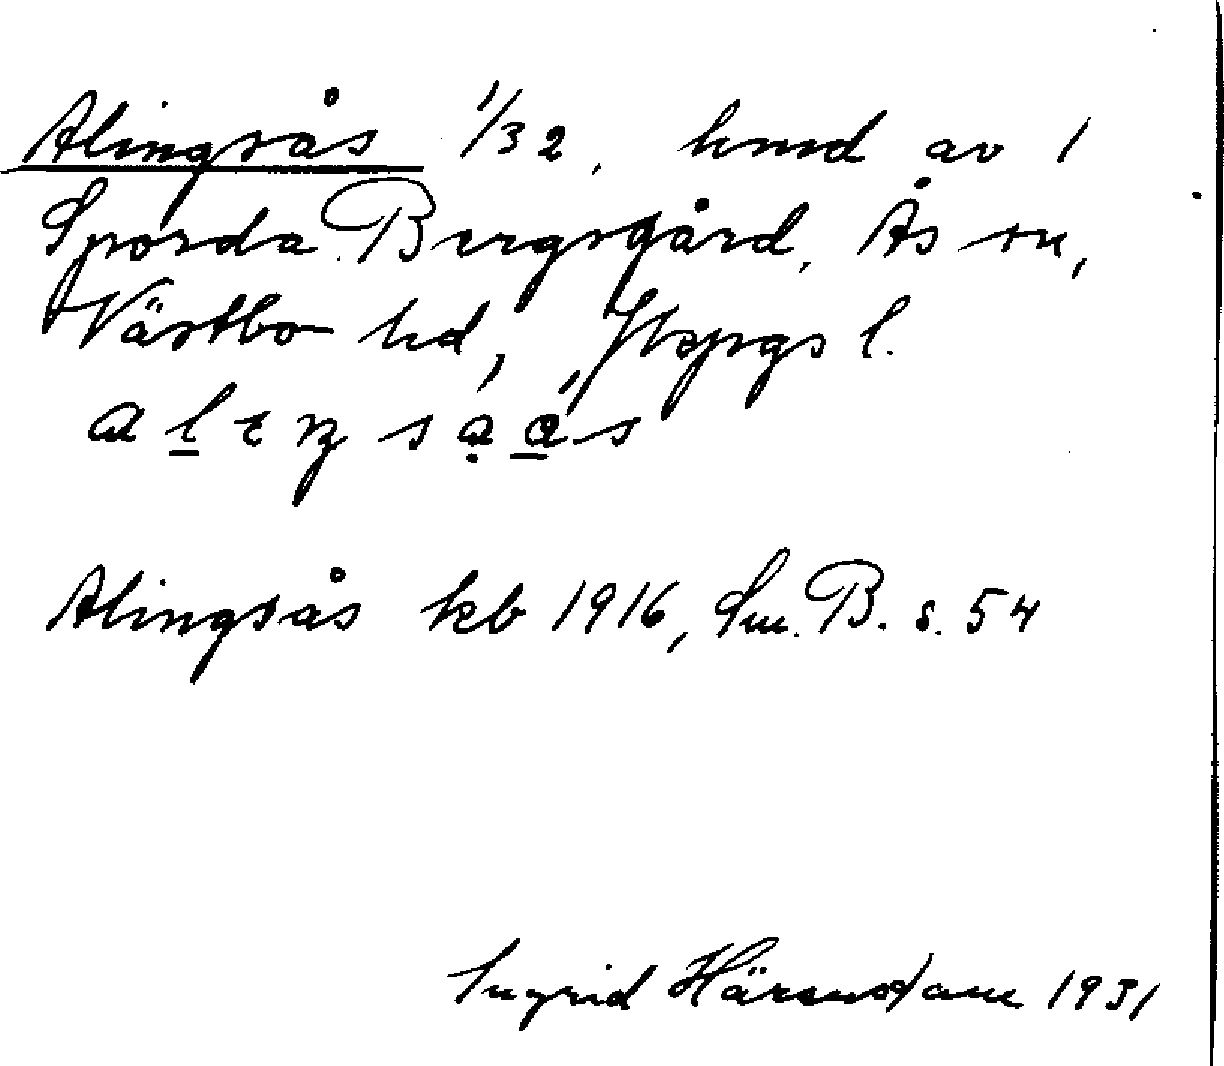 Alingsås 1/32, hmd av 1
Sporda Bergsgård, Ås sn,
Västbo hd, Jkpgs l.
Alingsås kb 1916, Sm. B. s. 54
Ingrid Härenstam 1931